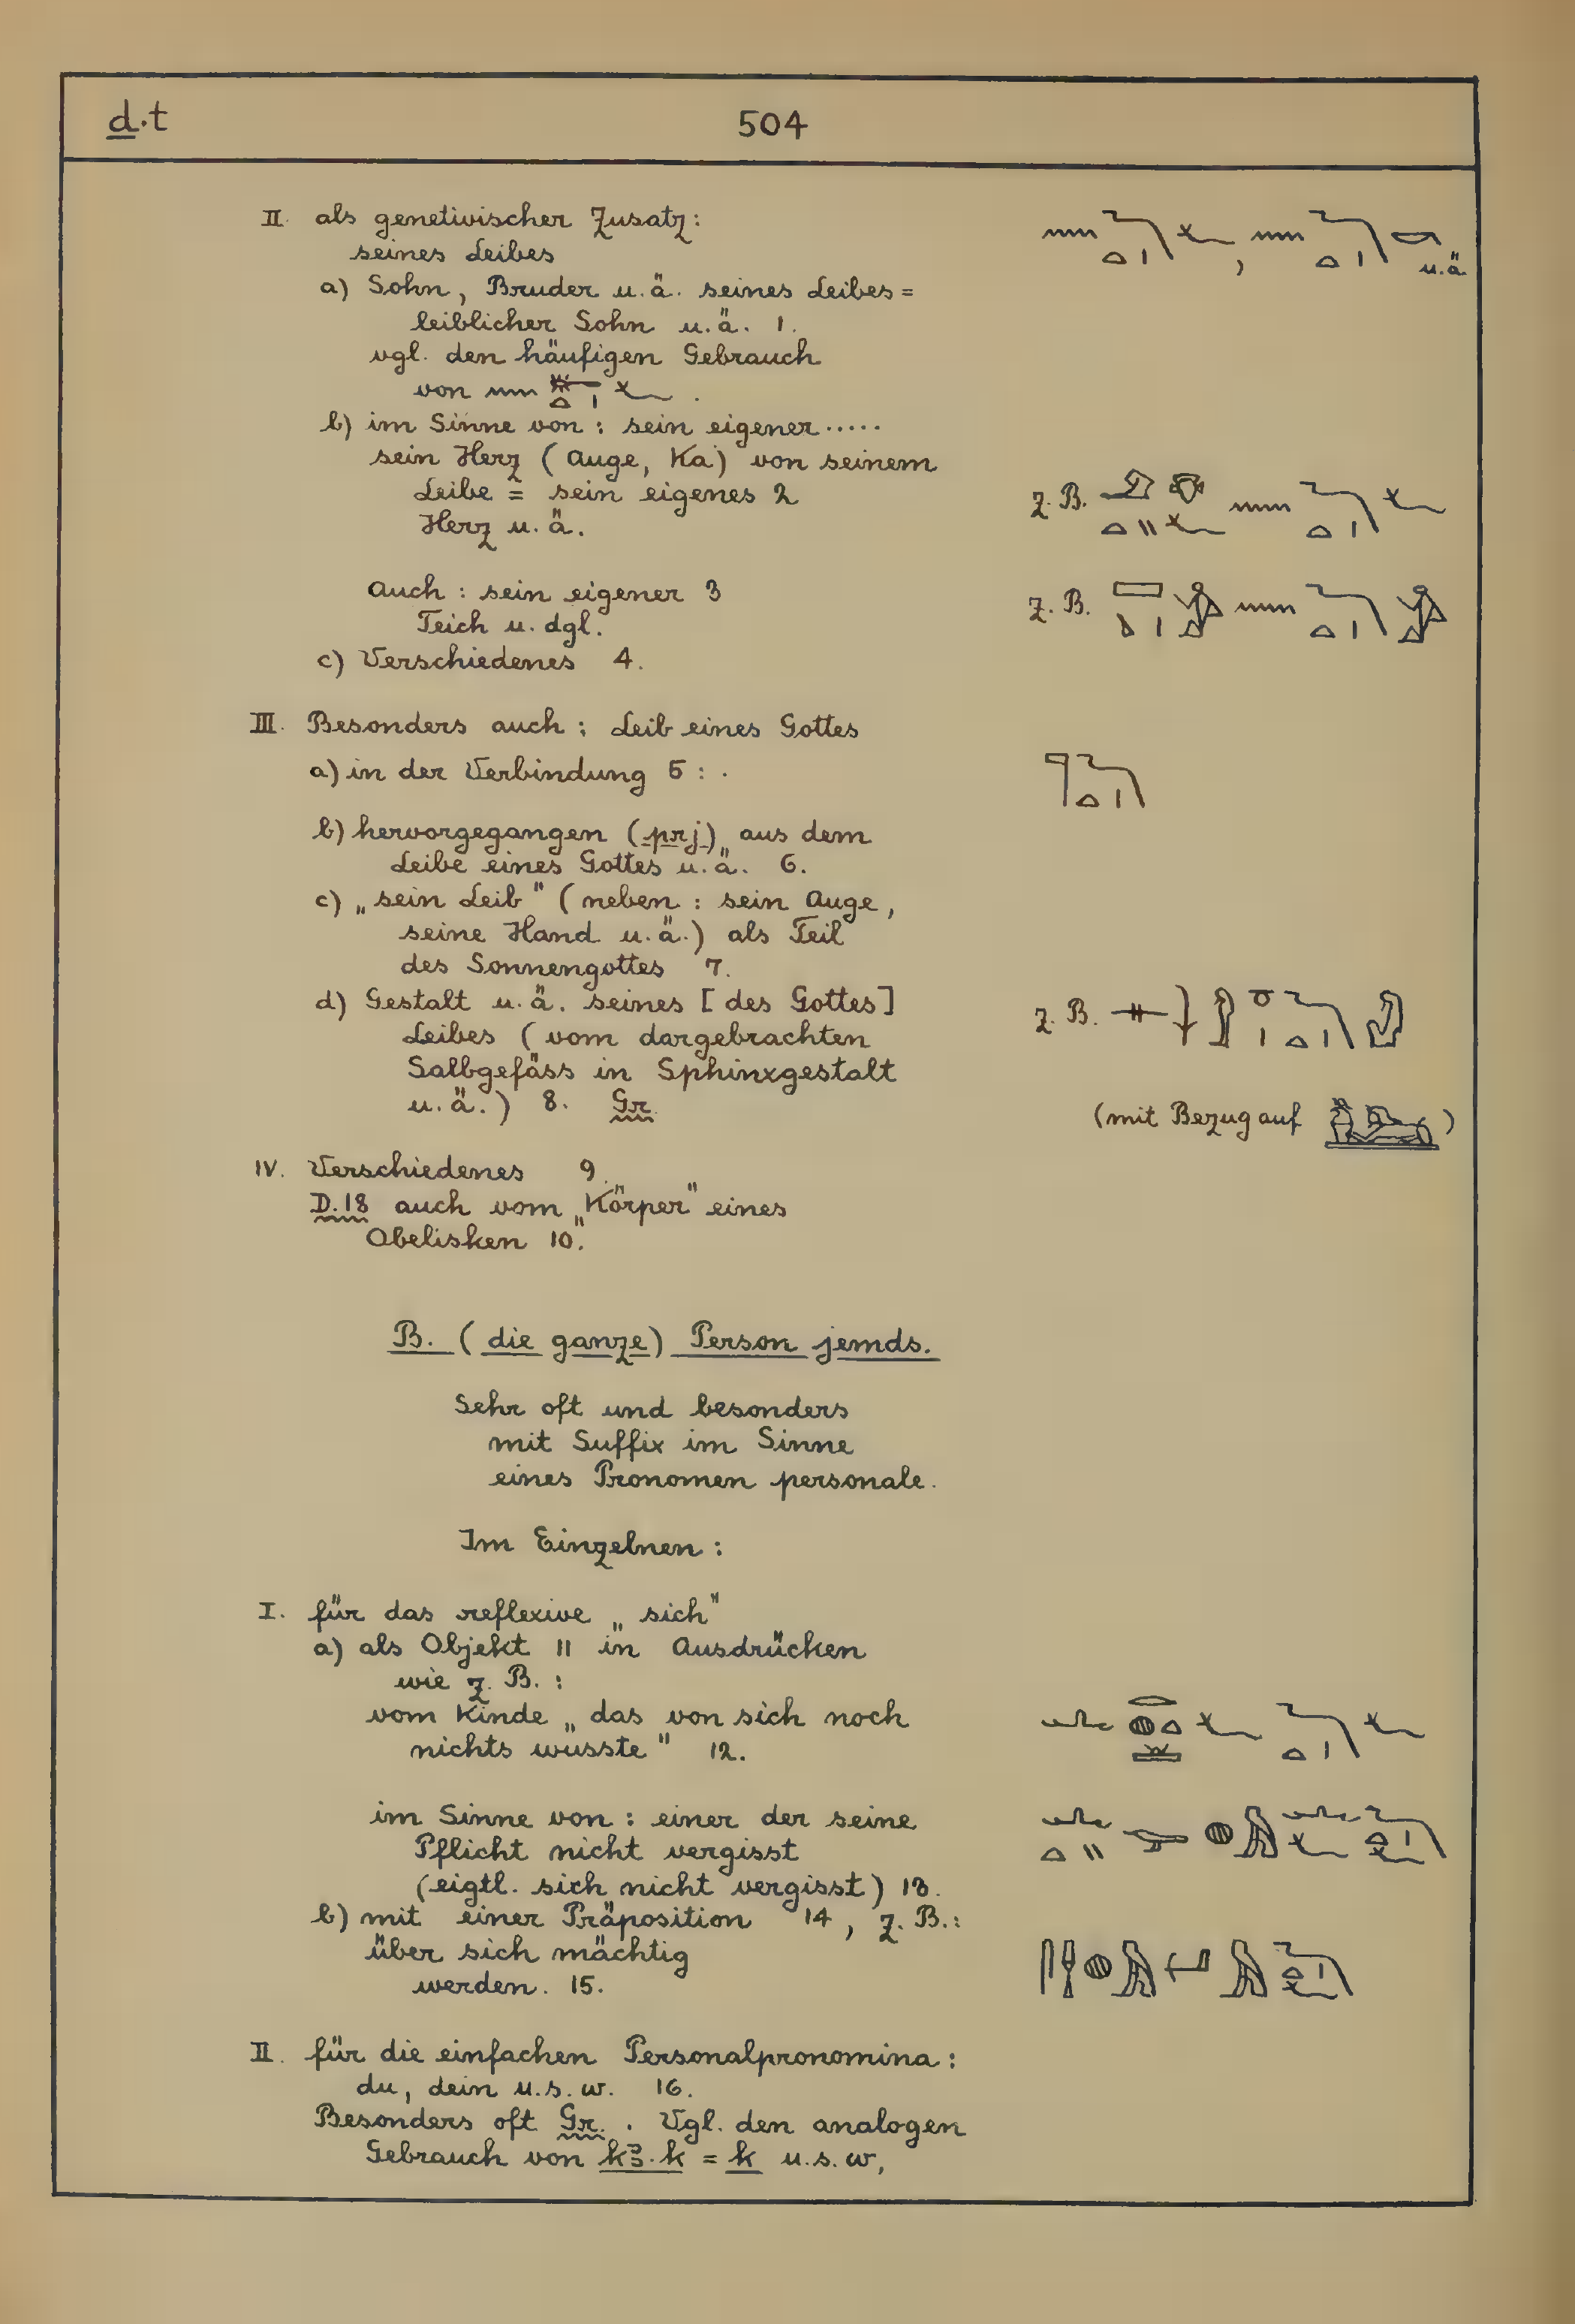 ḏ.t
504
II. als genetivischer Zusatz:
seines Leibes
u.ä.
a) Sohn, Bruder u.ä. seines Leibes =
leiblicher Sohn u.ä. 1.
vgl. den häufigen Gebrauch
von
b) im Sinne von: sein eigener.....
sein Herz (Auge, Ka) von seinem
Leibe = sein eigenes 2
z. B.
Herz u.ä.
Auch: sein eigener 3
z. B.
Teich u. dgl.
c) Verschiedenes 4.
III. Besonders auch: Leib eines Gottes
a) in der Verbindung 5:
b) hervorgegangen (prj) aus dem
Leibe eines Gottes u.ä. 6.
c) „sein Leib" (neben: sein Auge,
seine Hand u.ä.) als Teil
des Sonnengottes 7.
d) Gestalt u.ä. seines [des Gottes]
z. B.
Leibes (vom dargebrachten
Salbgefäss in Sphinxgestalt
u.ä.) 8. Gr.
(mit Bezug auf )
IV. Verschiedenes 9.
D.18 auch vom „Körper" eines
Obelisken 10.
B. (die ganze) Person jemds.
Sehr oft und besonders
mit Suffix im Sinne
eines Pronomen personale.
Im Einzelnen:
I. für das reflexive „sich"
a) als Objekt 11 in Ausdrücken
wie z. B.:
vom Kinde „das von sich noch
nichts wusste" 12.
im Sinne von: einer der seine
Pflicht nicht vergisst
(eigtl. sich nicht vergisst) 13.
b) mit einer Präposition 14, z. B.:
über sich mächtig
werden. 15.
II. für die einfachen Personalpronomina:
du, dein u.s.w. 16.
Besonders oft Gr. . Vgl. den analogen
Gebrauch von kꜣ.k = k u.s.w,